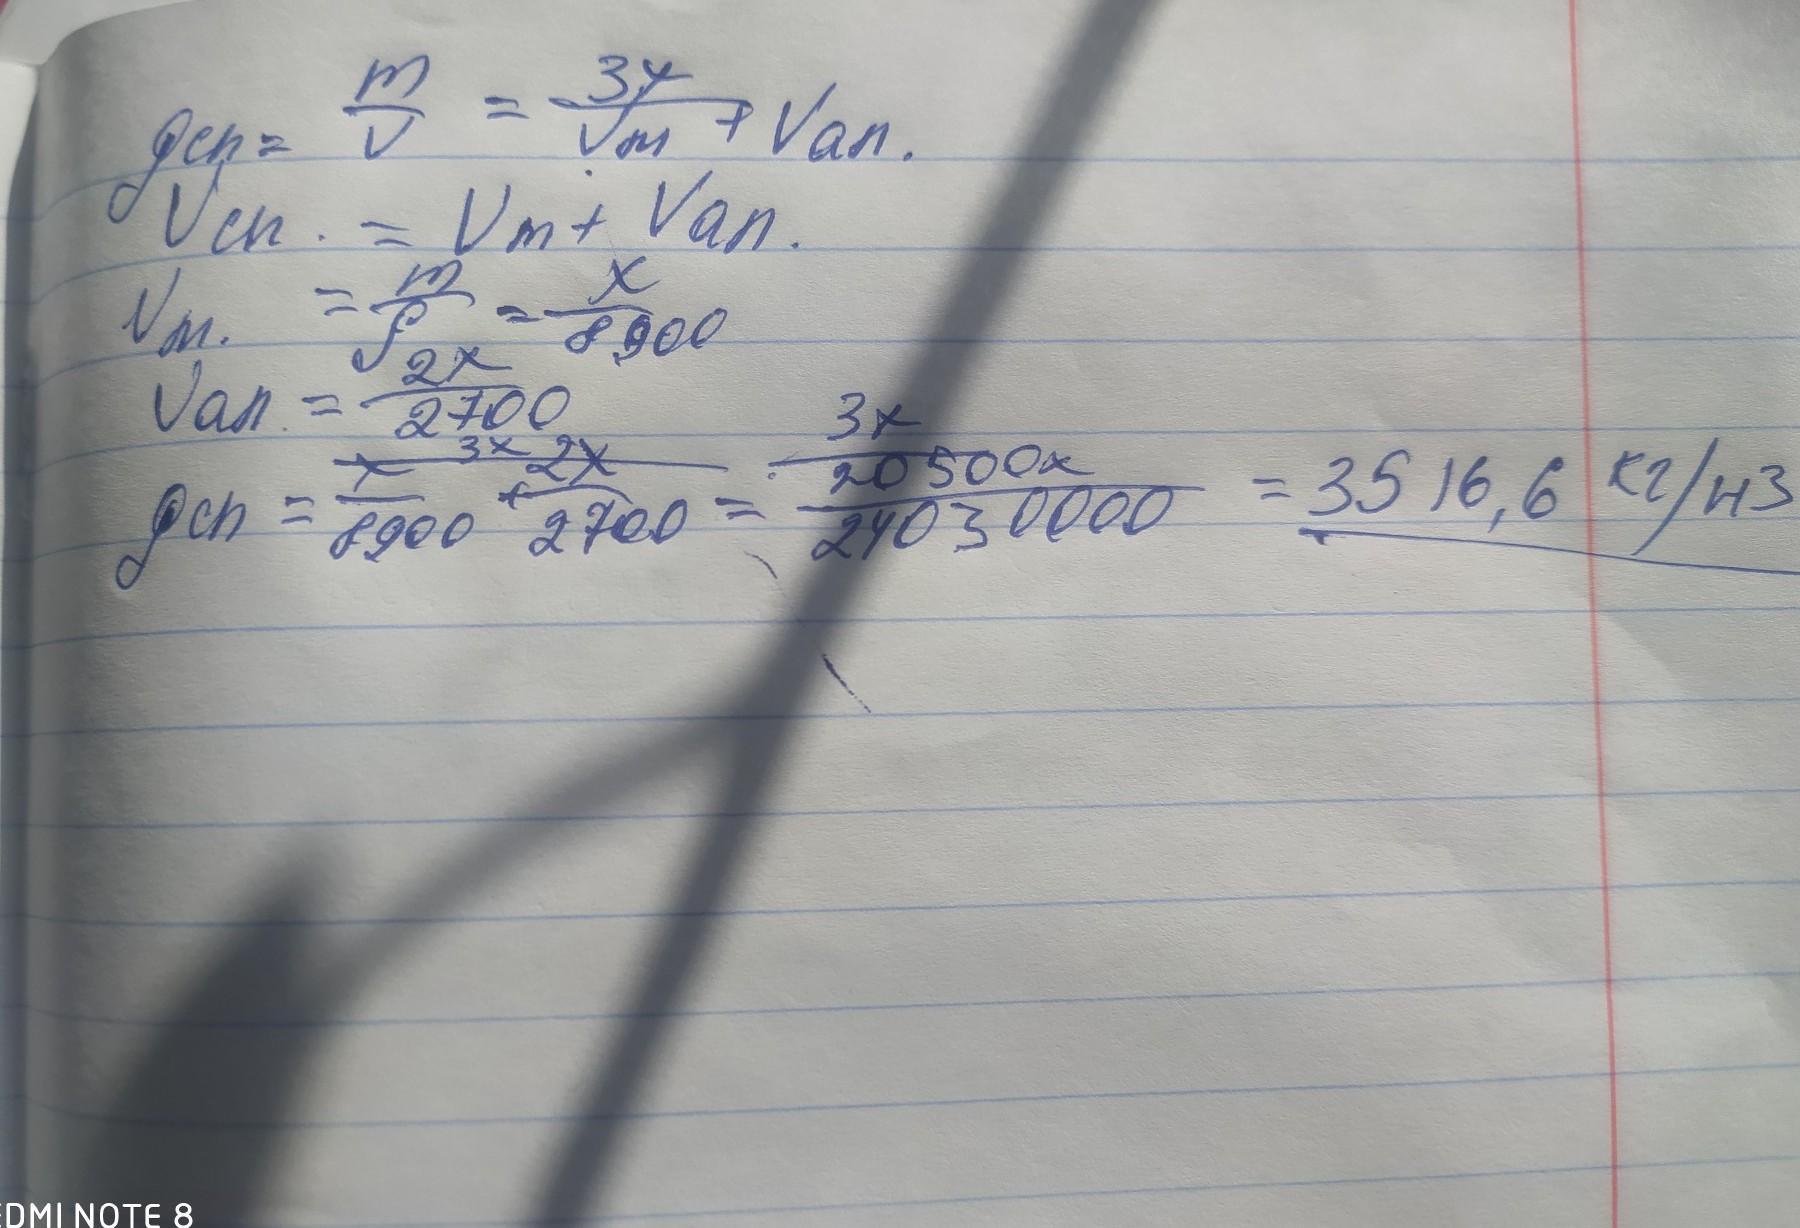 ρсп = m/V = 3x/Vм + Vал.
Vсп. = Vм + Vал.
Vм. = m/ρ = x/8900
Vал. = 2x/2700
ρсп = 3x/(x/8900 + 2x/2700) = 3x/(20500x/24030000) = 3516,6 кг/м3
EDMI NOTE 8